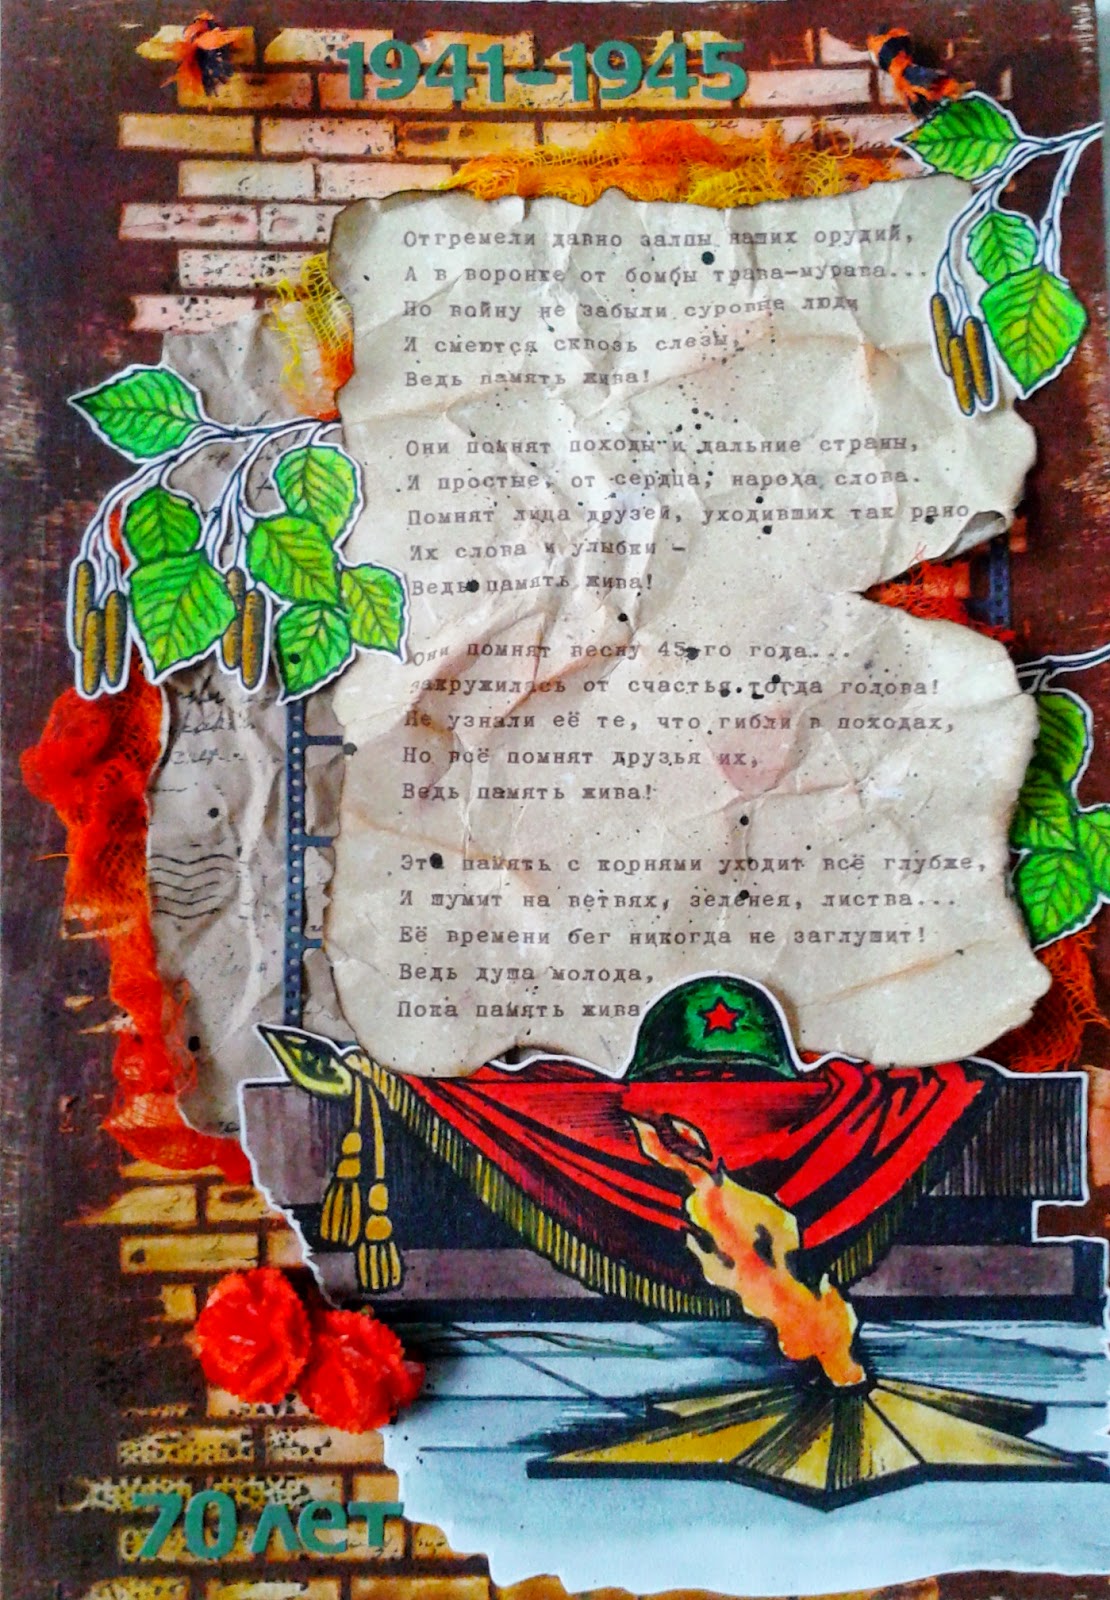 1941-1945
Отгремели давно залпы наших орудий,
А в воронке от бомбы трава-мурава...
Но войну не забыли суровые люди
И смеются сквозь слезы,
Ведь память жива!
Они помнят походы и дальние страны,
И простые, от сердца, народа слова.
Помнят лица друзей, уходивших так рано
Их слова и улыбки -
Ведь память жива!
Они помнят весну 45-го года...
Закружилась от счастья тогда голова!
Не узнали её те, что гибли в походах,
Но всё помнят друзья их,
Ведь память жива!
Эта память с корнями уходит всё глубже,
И шумит на ветвях, зеленея, листва...
Её времени бег никогда не заглушит!
Ведь душа молода,
Пока память жива
70 лет